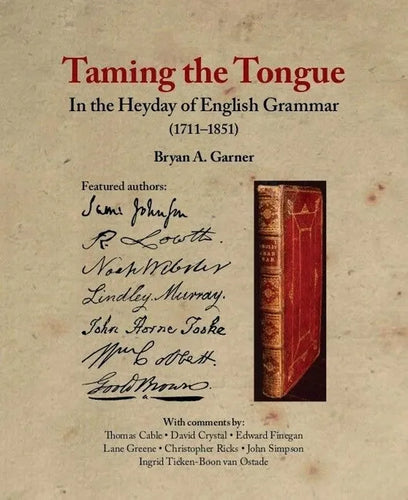 Taming the Tongue
In the Heyday of English Grammar
(1711–1851)
Bryan A. Garner
Featured authors:
Sam: Johnson
R. Lowth.
Noah Webster
Lindley Murray.
John Horne Tooke
Wm Cobbett.
Goold Brown.
With comments by:
Thomas Cable • David Crystal • Edward Finegan
Lane Greene • Christopher Ricks • John Simpson
Ingrid Tieken-Boon van Ostade